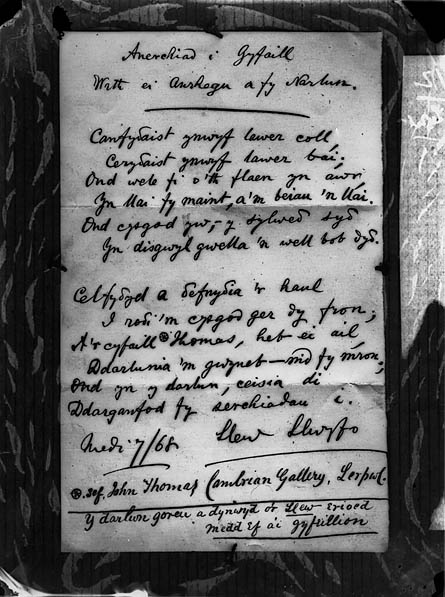 Anerchiad i Gyfaill
Wrth ei Anrhegu a fy Narlun.
Canfyddaist ynwyf lawer coll,
Cerydaist ynwyf lawer bai;
Ond wele fi o'th flaen yn awr
Yn llai fy maint, a'm beiau 'n llai.
Ond cysgod yw, – y sylwedd sydd
Yn disgwyl gwella 'n well bob dydd.
Celfyddyd a ddefnyddia 'r haul
I roddi 'm cysgod ger dy fron;
A'r cyfaill ⊛Thomas, heb ei ail,
Ddarlunia 'm gwyneb – nid fy mron;
Ond yn y darlun, ceisia di
Ddarganfod fy serchiadau i.
Medi 7/68 Llew Llwyfo
⊛. sef, John Thomas, Cambrian Gallery, Lerpwl.
Y darlun goreu a dynwyd o'r Llew erioed
medd Ef a'i gyfeillion